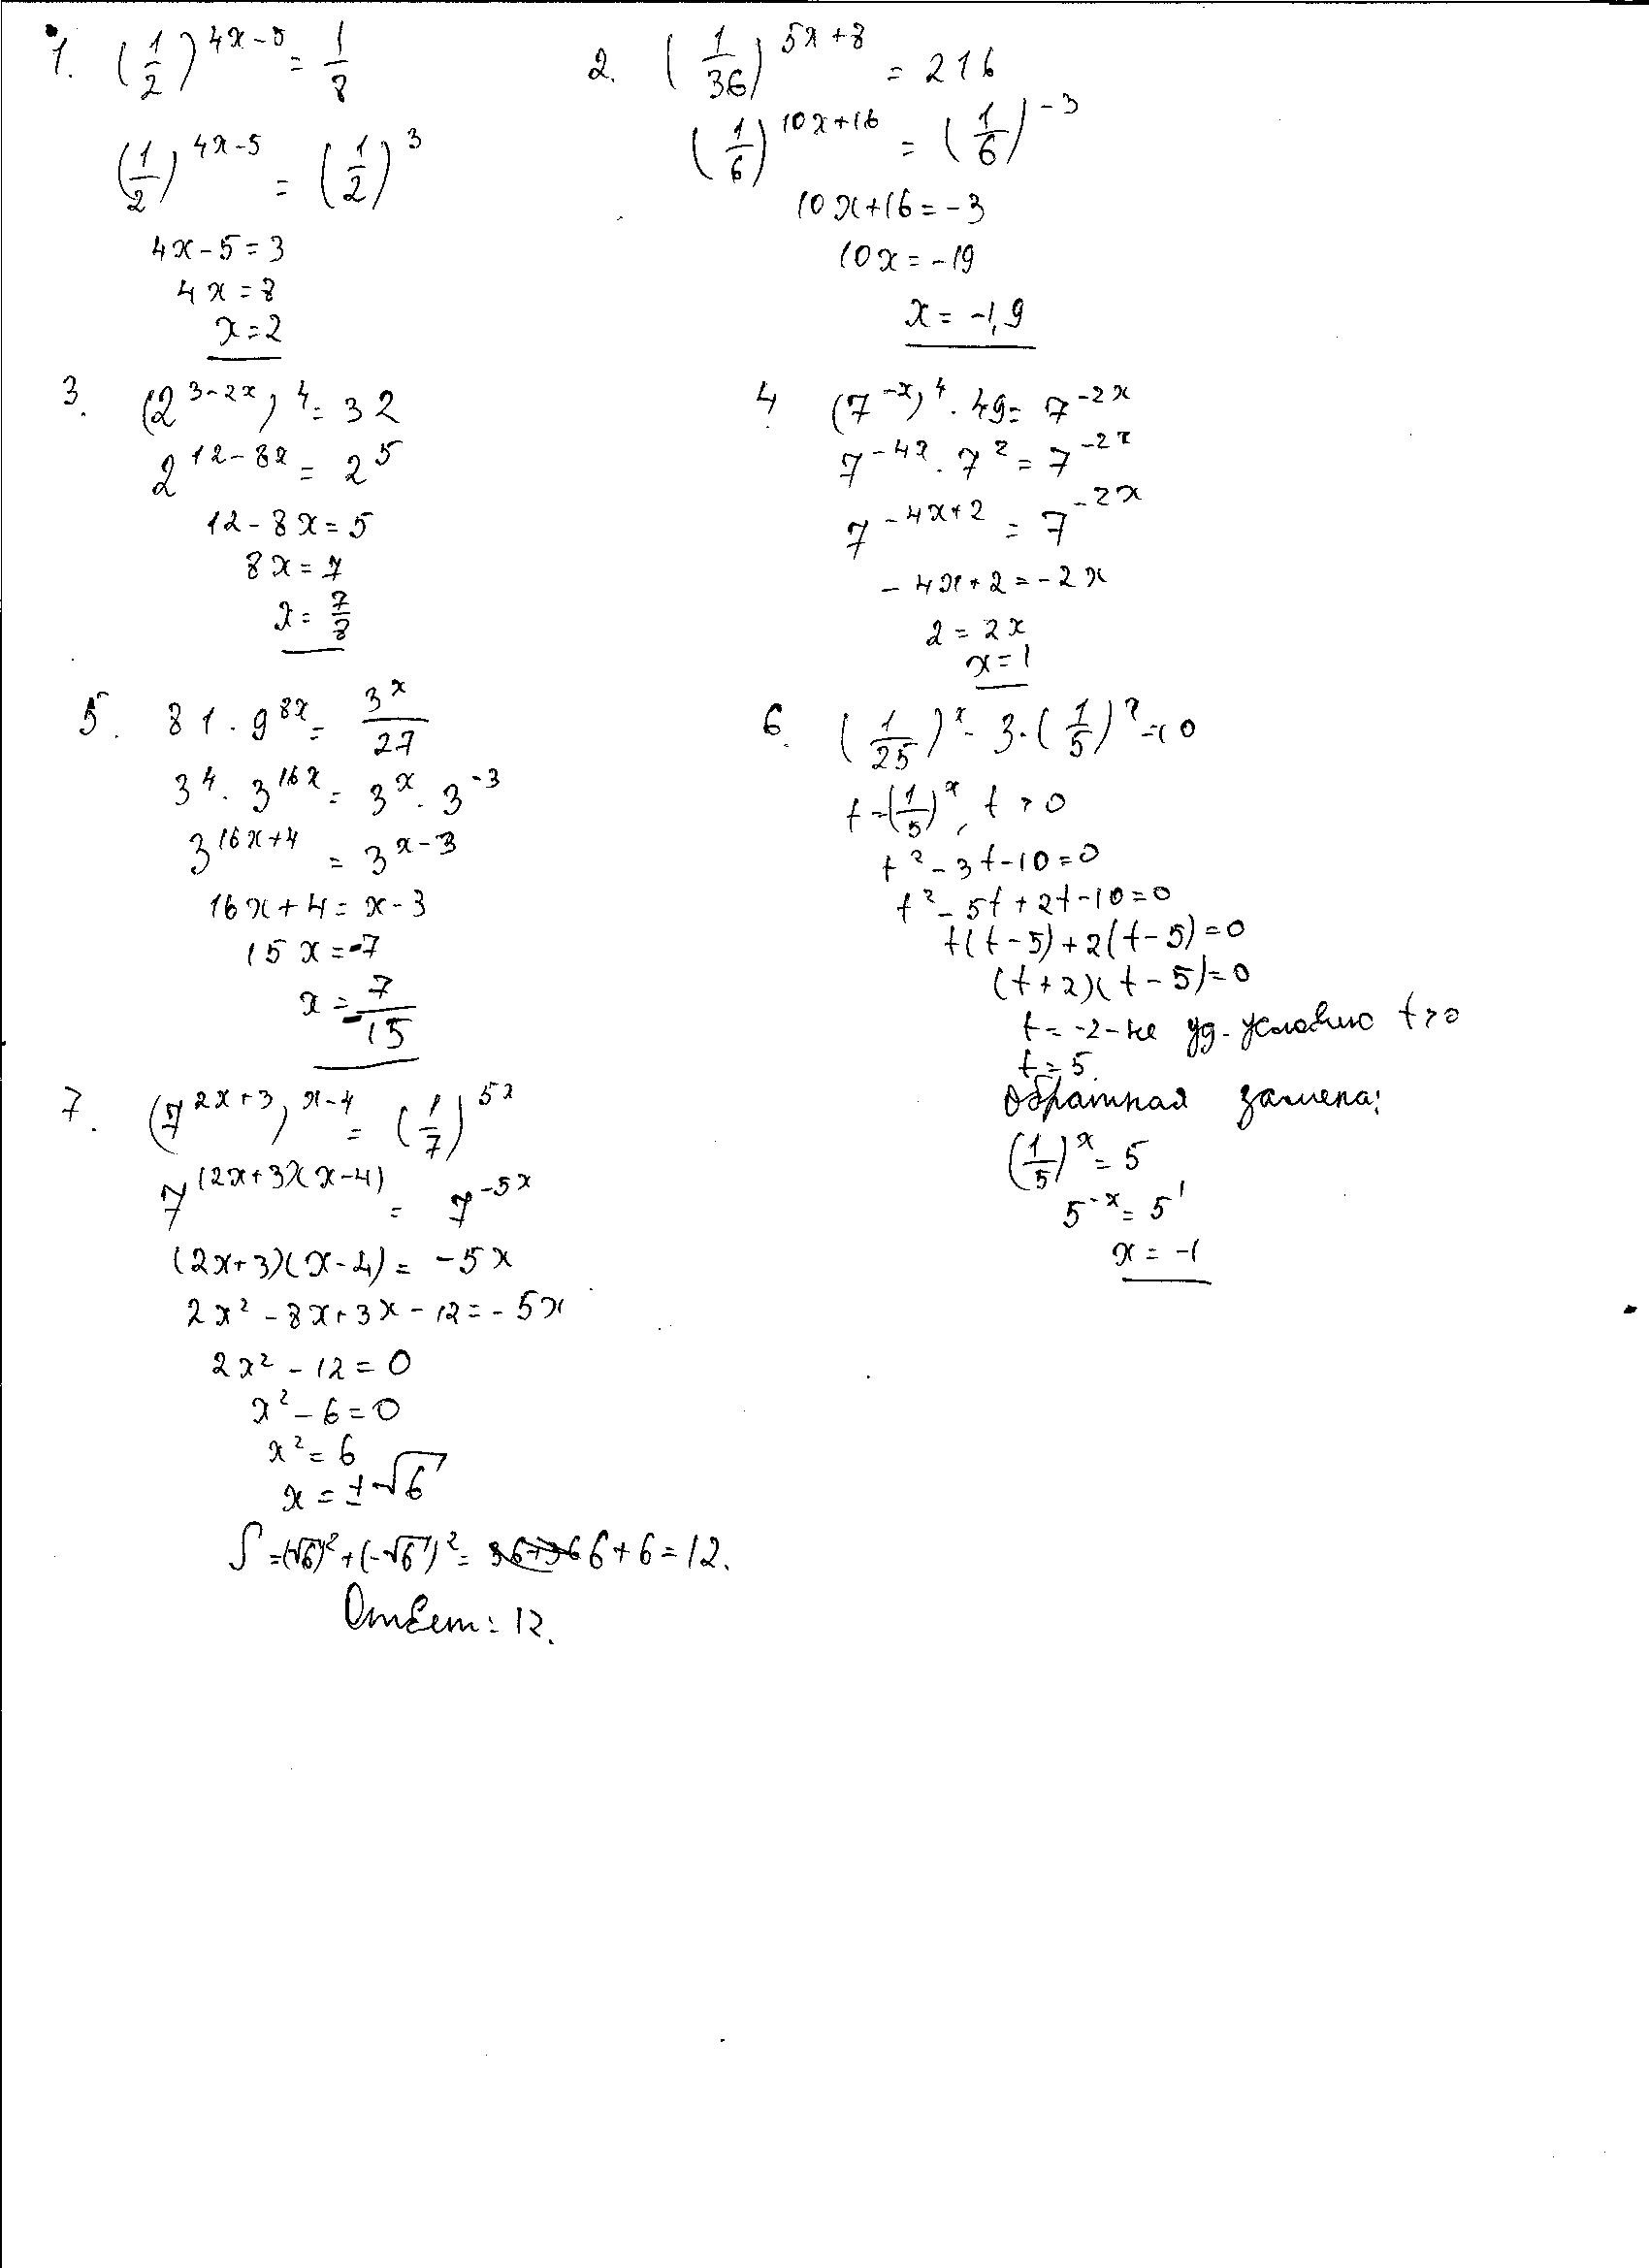 1. (1/2)^(4x-5) = 1/8
(1/2)^(4x-5) = (1/2)^3
4x-5=3
4x=8
x=2
2. (1/36)^(5x+8) = 216
(1/6)^(10x+16) = (1/6)^(-3)
10x+16=-3
10x=-19
x=-1,9
3. (2^(3-2x))^4=32
2^(12-8x) = 2^5
12-8x=5
8x=7
x=7/8
4 (7^(-x))^4·49=7^(-2x)
7^(-4x)·7^2=7^(-2x)
7^(-4x+2) = 7^(-2x)
-4x+2=-2x
2=2x
x=1
5. 81·9^(8x)= 3^x/27
3^4·3^(16x)=3^x·3^(-3)
3^(16x+4) = 3^(x-3)
16x+4=x-3
15x=-7
x=-7/15
6. (1/25)^x - 3·(1/5)^x=10
t=(1/5)^x, t>0
t²-3t-10=0
t²-5t+2t-10=0
t(t-5)+2(t-5)=0
(t+2)(t-5)=0
t=-2-не уд. условию t>0
t=5.
Обратная замена:
(1/5)^x=5
5^(-x)=5^1
x=-1
7. (7^(2x+3))^(x-4) = (1/7)^(5x)
7^((2x+3)(x-4)) = 7^(-5x)
(2x+3)(x-4)=-5x
2x²-8x+3x-12=-5x
2x²-12=0
x²-6=0
x²=6
x=±√6
S=(√6)²+(-√6)²= 6+6=12.
Ответ: 12.